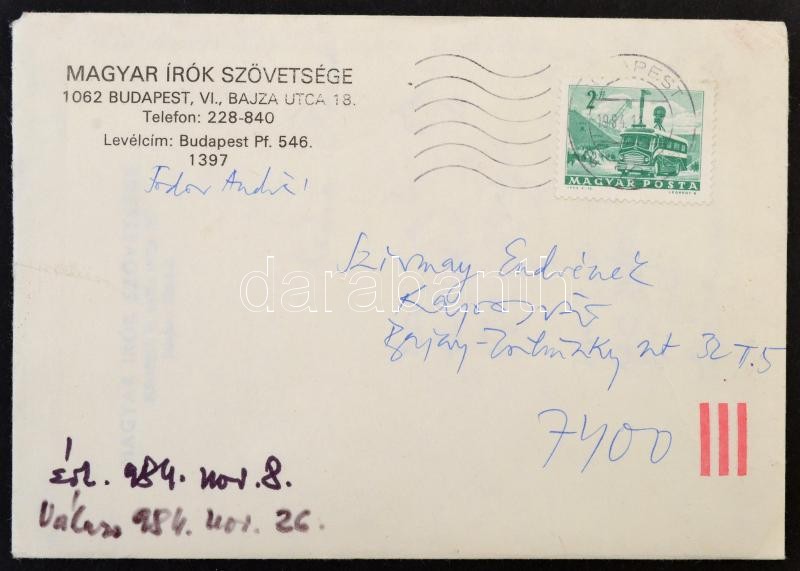 MAGYAR ÍRÓK SZÖVETSÉGE
1062 BUDAPEST, VI., BAJZA UTCA 18.
Telefon: 228-840
Levélcím: Budapest Pf. 546.
1397
Fodor András
BUDAPEST
2 Ft
1984.
MAGYAR POSTA
Szirmay Endrének
Kaposvár
32 II. 5
7400
darabanth
érk. 984. nov. 8.
Válasz 984. nov. 26.